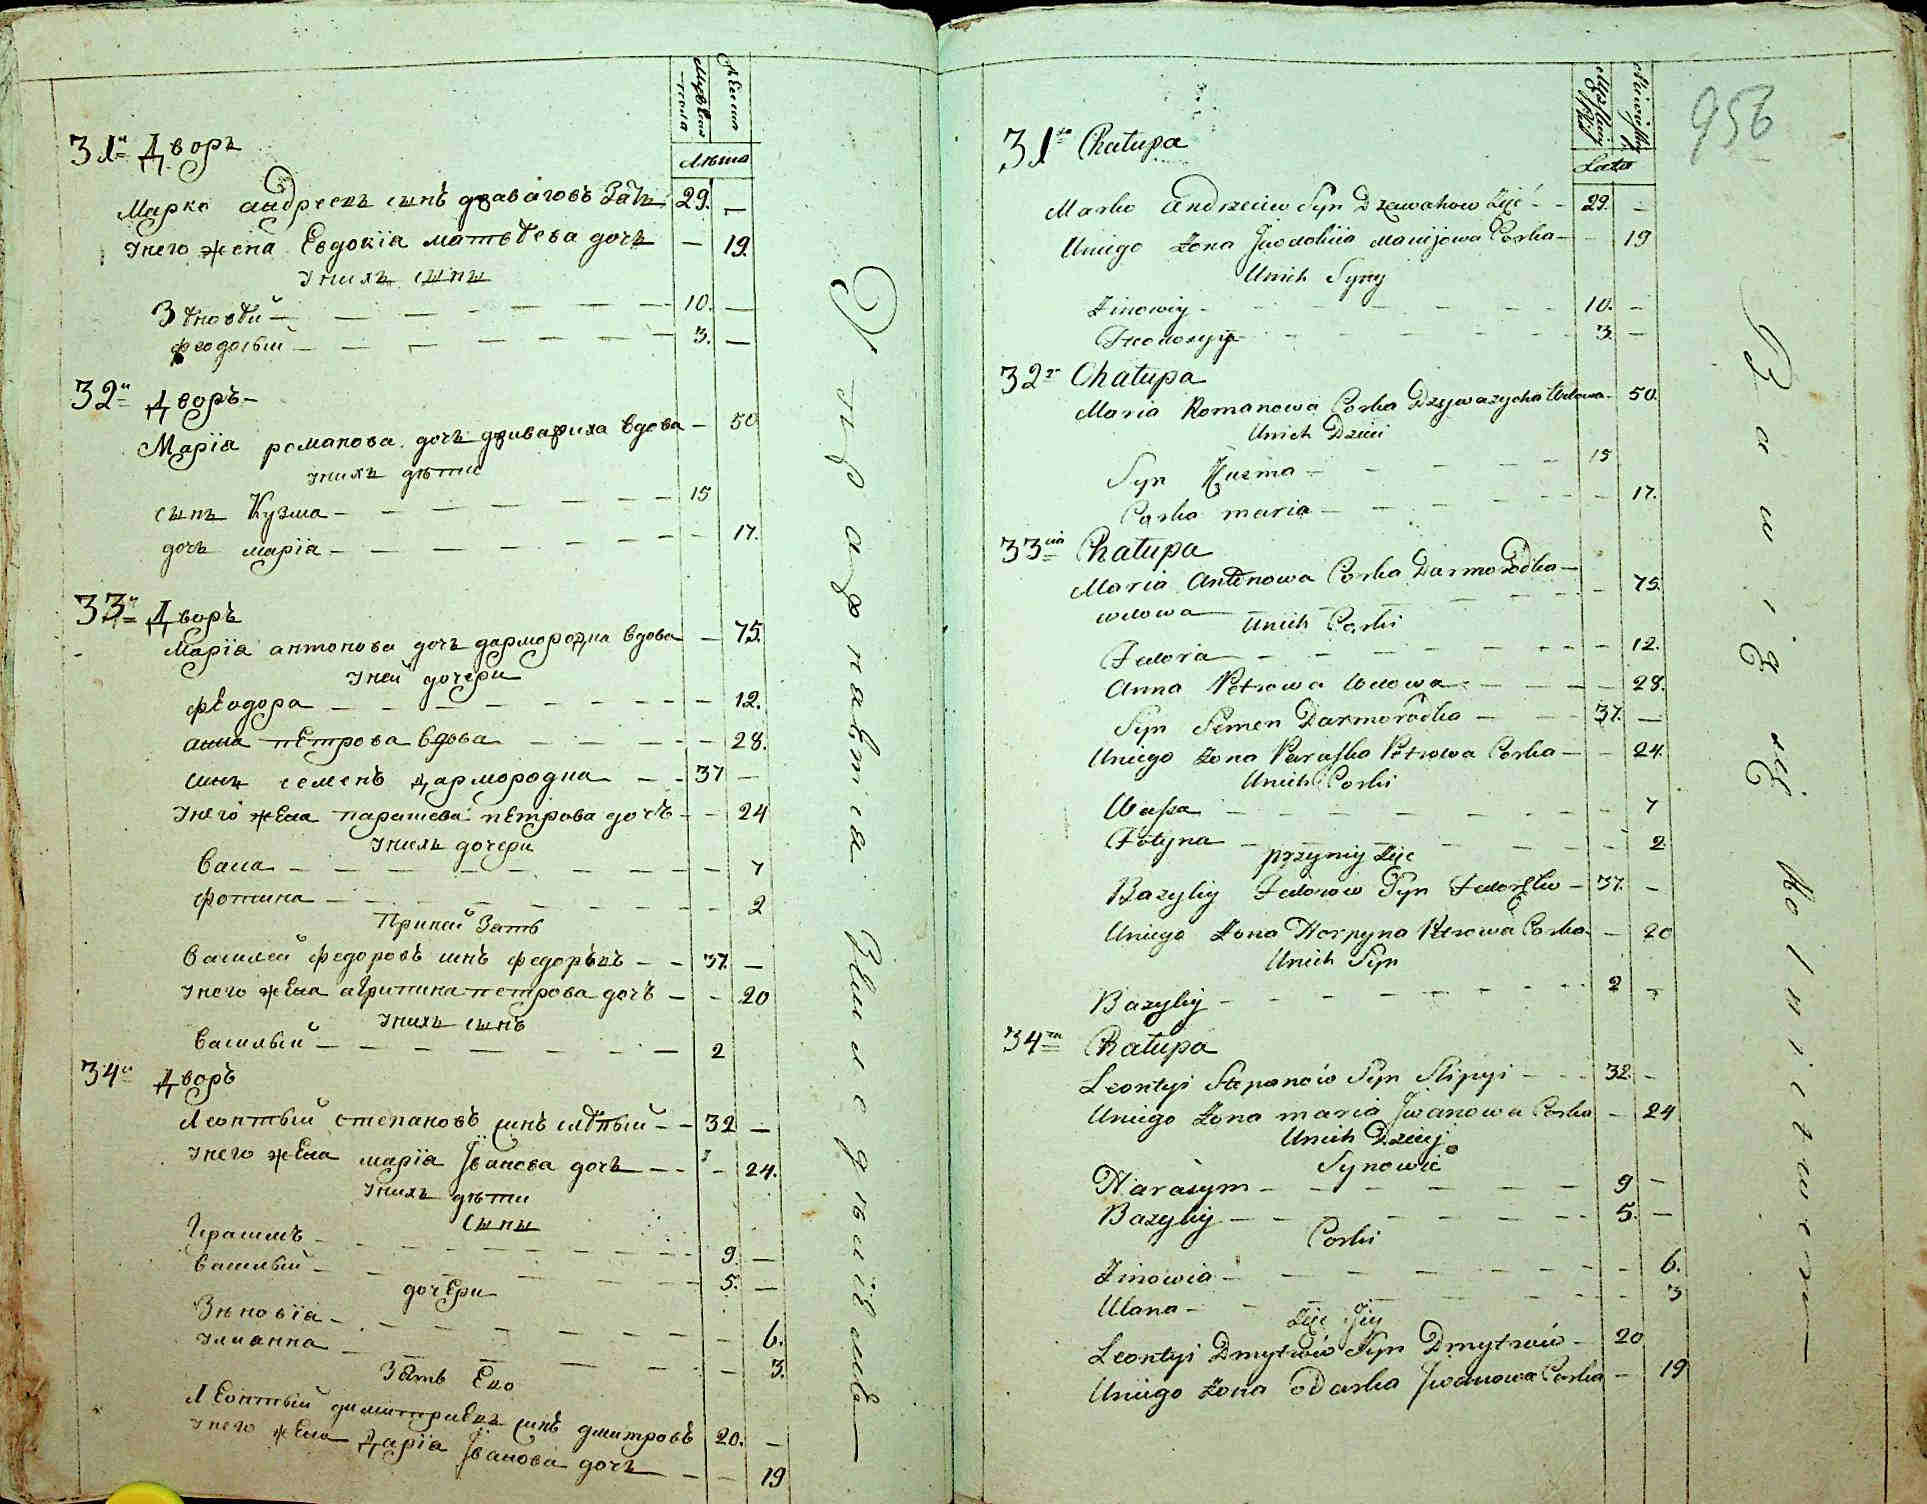 Мужеска
пола
Женска
Лѣта
31й Дворъ
Марко андреевъ сынъ дзваговъ Зать 29. —
Унего жена Евдокїа матѳѣева дочь — 19.
Унихъ сыны
Зѣновѣй — 10. —
Феодосый — 3. —
32й Дворъ
Марїа романова дочь дзивазиха вдова — 50
Унихъ дѣти
сынъ Кузма — 15
дочь марїа — 17.
33й Дворъ
Марїа антонова дочь дармородка вдова — 75.
Уней дочери
Феодора — 12.
анна пѣтрова вдова — 28.
сынъ семенъ Дармородка — 37 —
Унего жена парашева пѣтрова дочь — 24
Унихъ дочери
Васа — 7
Фотина — 2
Приней Зять
Василей федоровъ синъ федорѣвъ — 37. —
Унего жена агрипина петрова дочь — 20
Унихъ сынъ
Василый — 2
34й Дворъ
Леонтый степановъ синъ слѣпый — 32 —
Унего жена марїа Їванова дочь — 24.
Унихъ дѣти
Сыны
Герасимъ — 9. —
Василый — 5. —
дочери
Зѣновїа — 6.
Улианна — 3.
Зять Его
Леонтый димитриевъ синъ дмитровъ 20. —
Унего жена Дарїа Їванова дочь — 19
Парафиалне
956
Lata
31sza Chałupa
Marko Andrzeiiw Syn Dzawahow Zięć — 29. —
Uniego Żona Jwdokiia Matijowa Corka — 19
Unich Syny
Zinowiy — 10. —
Teodosyiy — 3. —
32ga Chałupa
Maria Romanowa Corka Dzywazycha Wdowa — 50.
Unich Dzieci
Syn Kuzma — 15
Corka maria — 17.
33cia Chałupa
Maria Antonowa Corka Darmorodka —
wdowa — 75.
Unich Corki
Fedora — 12.
Anna Petrowa Wdowa — 28.
Syn Semen Darmorodka — 37. —
Uniego Żona Paraska Petrowa Corka — 24.
Unich Corki
Wassa — 7
Fotyna — 2
przyniy Zięć
Bazyliy Fedorow Syn Fedorków — 37. —
Uniego Żona Horpyna Petrowa Corka — 20
Unich Syn
Bazyliy — 2 —
34ta Chałupa
Leontyi Stepanów Syn Slipyi — 32. —
Uniego Żona maria Jwanowa Corka — 24
Unich Dzieci
Synowie
Harasym — 9 —
Bazyliy — 5. —
Corki
Zinowia — 6.
Ulana — 3
Zięć Jeiu
Leontyi Dmytrów Syn Dmytrów — 20
Uniego Żona Odarka Jwanowa Corka — 19